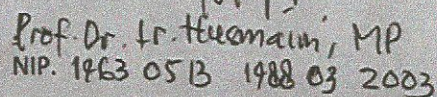 Prof. Dr. Ir. Husmaini, MP
NIP. 1963 0513 1988 03 2003